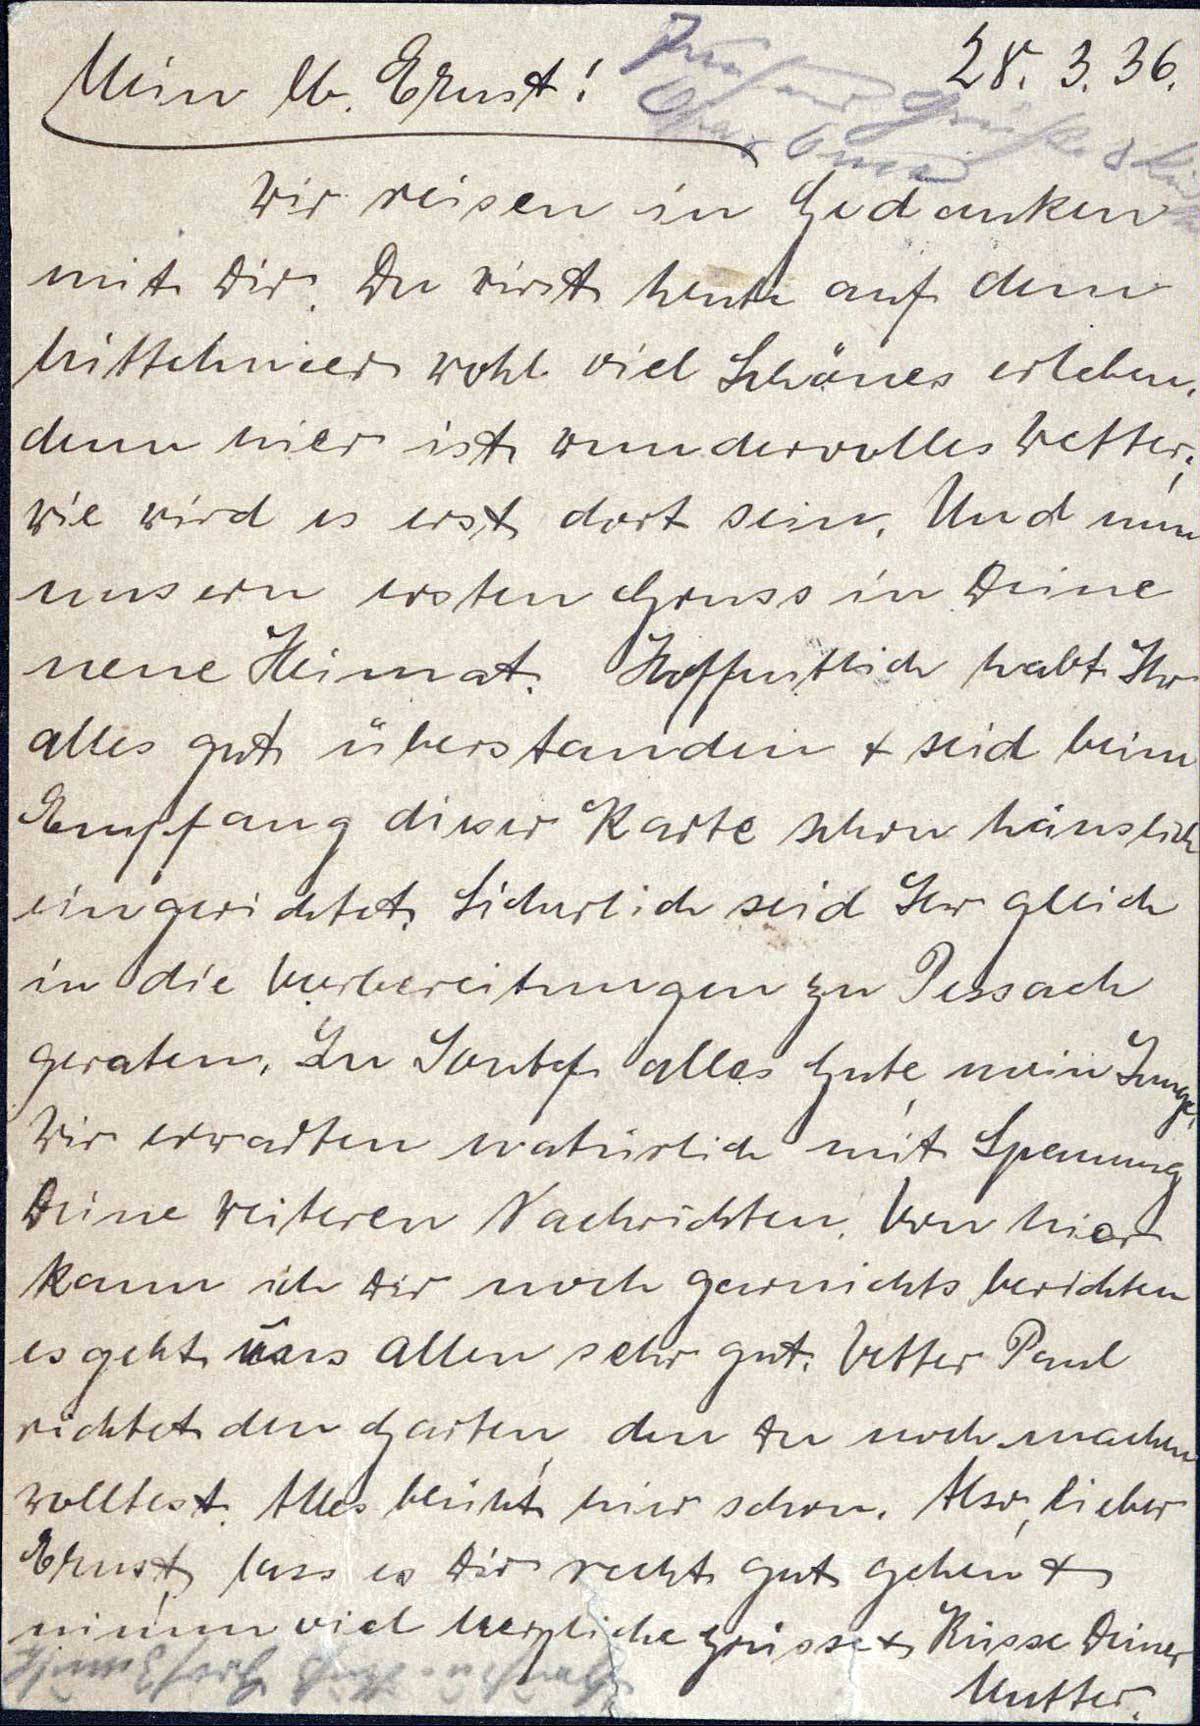 28. 3. 36.
Mein lb. Ernst!
Grüße
Opa & Oma
Wir reisen in Gedanken
mit Dir. Du wirst heute auf dem
Mittelmeer wohl viel Schönes erleben,
denn hier ist wundervolles Wetter,
wie wird es erst dort sein. Und nun
unsern ersten Gruss in Deine
neue Heimat. Hoffentlich habt Ihr
alles gut überstanden & seid beim
Empfang dieser Karte schon häuslich
eingerichtet. Sicherlich seid Ihr gleich
in die Vorbereitungen zu Pessach
geraten. Zu Jontef alles Gute mein Junge.
Wir erwarten natürlich mit Spannung
Deine weiteren Nachrichten. Von hier
kann ich Dir noch garnichts berichten
es geht uns allen sehr gut. Vetter Paul
richtet den Garten, den Du noch machen
wolltest. Alles blüht hier schon. Also, lieber
Ernst, lass es Dir recht gut gehen &
nimm viel herzliche Grüsse & Küsse Deiner
Mutter.